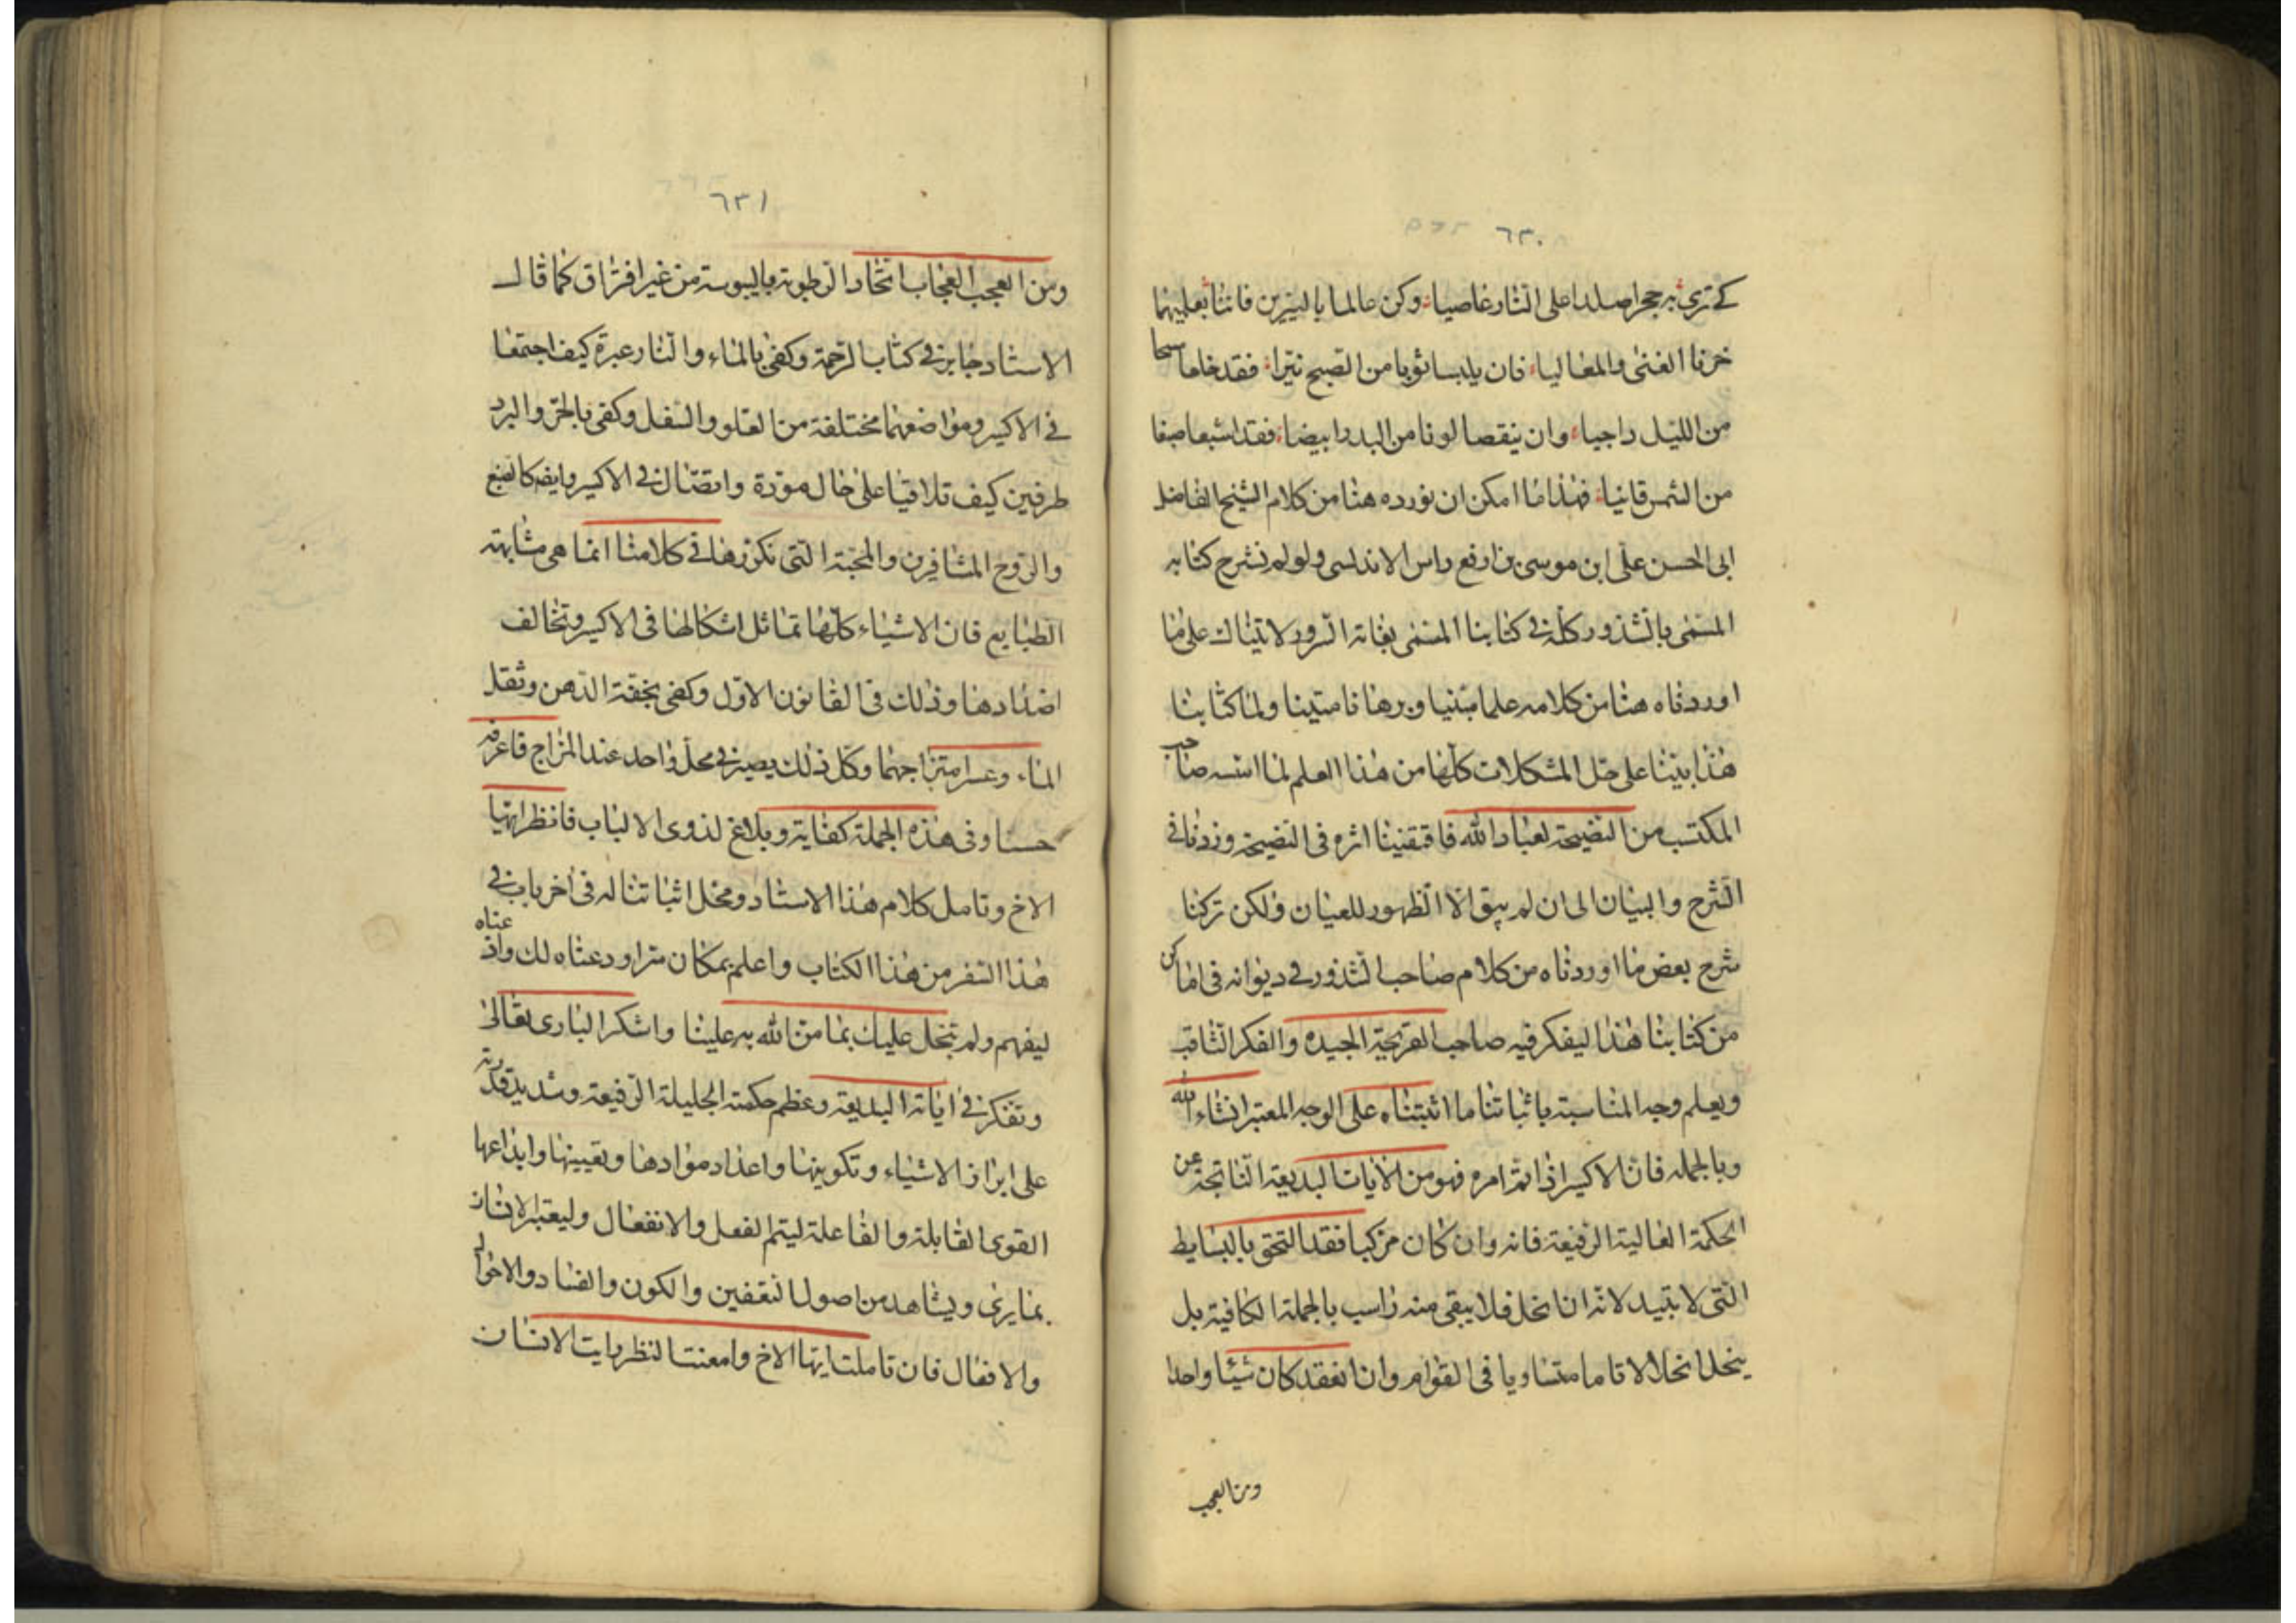 ٦٣٠
كے ترى به حجرا صلدا على النار عاصيا وكن عالما بالنيرين فانا بعليهما
خرفا الغنى والمعاليا فان يلبسا ثوبا من الصبح نيرا فقد خلعا سبحا
من الليل داجيا وان ينقصا لونا من البدر ابيضا فقد اشبعا صبغا
من الشمس قانيا فهذا ما امكن ان نورده هنا من كلام الشيخ الفاضل
ابى الحسن على ابن موسى بن ارفع راس الاندلسى ولو لم نشرح كتابه
المسمى بالشذور كله فى كتابنا المسمى بغاية السرور لاتيناك على ما
اوردناه هنا من كلامه علما مبنيا وبرهانا متينا ولما كتابنا
هذا بنينا على حل المشكلات كلها من هذا العلم لما اسسه صاحب
المكتسب من النصيحة لعباد الله فاقتفينا اثره فى النصيحة وزدنا فى
الشرح والبيان الى ان لم يبق الا الظهور للعيان ولكن تركنا
شرح بعض ما اوردناه من كلام صاحب الشذور فى ديوانه فى اماكن
من كتابنا هذا ليفكر فيه صاحب القريحة الجيده والفكر الثاقب
ويعلم وجه المناسبة باثباتنا ما اثبتناه على الوجه المعتبر انشاء الله
وبالجمله فان الاكسير اذا تم امره فهو من الايات البديعة الناتجة عن
الحكمة العالية الرفيعة فانه وان كان مركبا فقد التحق بالبسايط
التى لا تبيد لانه ان انحل فلا يبقى منه راسب بالجملة الكافية بل
ينحل انحلالا تاما متساويا فى القوام وان انعقد كان شيئا واحدا
ومن العجب
٦٣١
ومن العجب العجاب اتحاد الرطوبة باليبوسة من غير افتراق كما قال
الاستاد جابر فى كتاب الرحمة وكفى بالماء والنار عبرة كيف اجتمعا
فى الاكسير ومواضعهما مختلفة من العلو والسفل وكفى بالحر والبرد
طرفين كيف تلاقيا على حال مودة واتصال فى الاكسير وايضا كانفع
والروح المتنافرين والمحبة التى نكررها فى كلامنا انما هى مشابهة
الطبايع فان الاشياء كلها تماثل اشكالها فى الاكسير وتخالف
اضدادها وذلك فى القانون الاول وكفى بخفة الدهن وثقل
الماء وعسر امتزاجهما وكل ذلك يصير فى محل واحد عند المزاج فاعرفه
حسنا وفى هذه الجملة كفاية وبلاغ لذوى الالباب فانظر ايها
الاخ وتامل كلام هذا الاستاد ومحل اثباتنا له فى اخر باب فى
هذا السفر من هذا الكتاب واعلم بمكان سر اودعناه لك واذعناه
ليفهم ولم نبخل عليك بما من الله به علينا واشكر البارى تعالى
وتفكر فى اياته البديعة وعظم حكمته الجليلة الرفيعة وشديد قدرته
على ابراز الاشياء وتكوينها واعداد موادها وتعيينها وابداعها
القوى القابلة والفاعلة ليتم الفعل والانفعال وليعتبر الانسان
بما يرى ويشاهد من اصول التعفين والكون والفساد والاحوال
والافعال فان تاملت ايها الاخ وامعنت النظر رايت الانسان